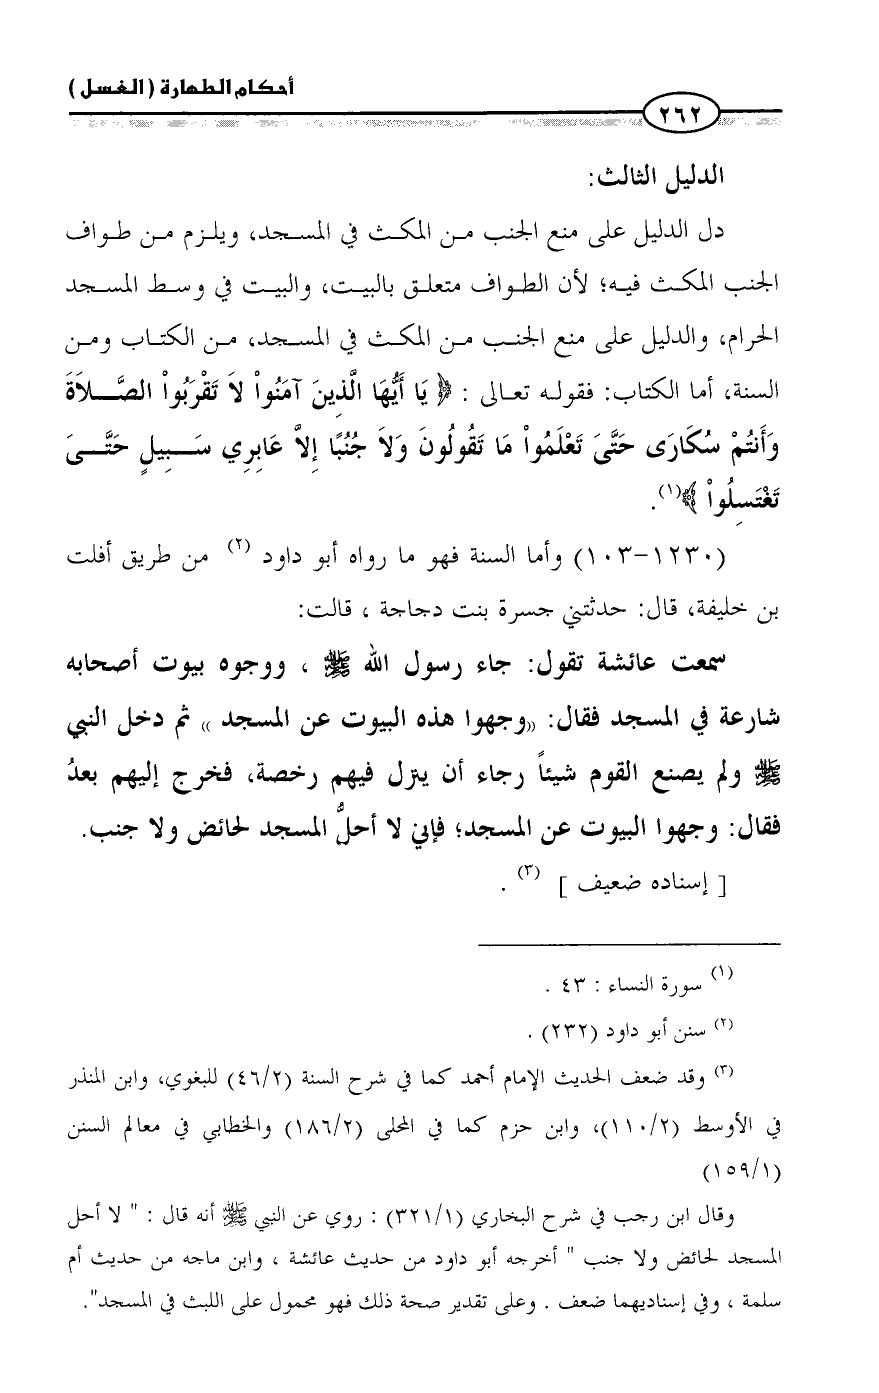 أحكام الطهارة ( الغسل )
٢٦٢
الدليل الثالث:
دل الدليل على منع الجنب من المكث في المسجد، ويلزم من طواف
الجنب المكث فيه؛ لأن الطواف متعلق بالبيت، والبيت في وسط المسجد
الحرام، والدليل على منع الجنب من المكث في المسجد، من الكتاب ومن
السنة، أما الكتاب: فقوله تعالى : ﴿ يَا أَيُّهَا الَّذِينَ آمَنُواْ لاَ تَقْرَبُواْ الصَّلاَةَ
وَأَنتُمْ سُكَارَى حَتَّىَ تَعْلَمُواْ مَا تَقُولُونَ وَلاَ جُنُبًا إِلاَّ عَابِرِي سَبِيلٍ حَتَّىَ
تَغْتَسِلُواْ ﴾(١).
(١٢٣٠-١٠٣) وأما السنة فهو ما رواه أبو داود (٢) من طريق أفلت
بن خليفة، قال: حدثتني جسرة بنت دجاجة ، قالت:
سمعت عائشة تقول: جاء رسول الله ﷺ ، ووجوه بيوت أصحابه
شارعة في المسجد فقال: «وجهوا هذه البيوت عن المسجد » ثم دخل النبي
ﷺ ولم يصنع القوم شيئاً رجاء أن ينزل فيهم رخصة، فخرج إليهم بعدُ
فقال: وجهوا البيوت عن المسجد؛ فإني لا أحلُّ المسجد لحائض ولا جنب.
[ إسناده ضعيف ] (٣) .
(١) سورة النساء : ٤٣ .
(٢) سنن أبو داود (٢٣٢) .
(٣) وقد ضعف الحديث الإمام أحمد كما في شرح السنة (٤٦/٢) للبغوي، وابن المنذر
في الأوسط (١١٠/٢)، وابن حزم كما في المحلى (١٨٦/٢) والخطابي في معالم السنن
(١٥٩/١)
وقال ابن رجب في شرح البخاري (٣٢١/١) : روي عن النبي ﷺ أنه قال : " لا أحل
المسجد لحائض ولا جنب " أخرجه أبو داود من حديث عائشة ، وابن ماجه من حديث أم
سلمة ، وفي إسناديهما ضعف . وعلى تقدير صحة ذلك فهو محمول على اللبث في المسجد".